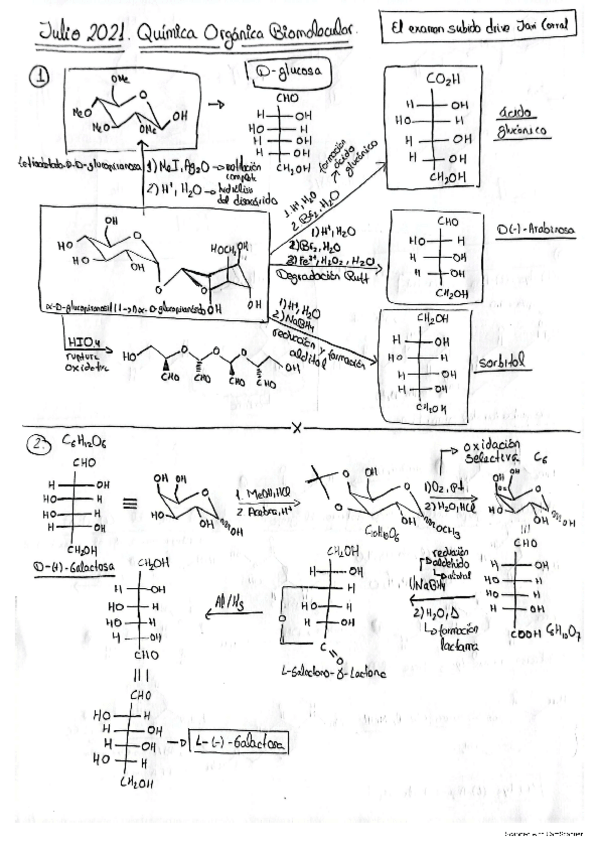 Julio 2021. Química Orgánica Biomolecular.
El examen subido drive Javi Corral
1
D-glucosa
OMe
MeO
O
MeO
OMe
OH
CHO
H OH
HO H
H OH
H OH
CH2OH
CO2H
H OH
HO H
H OH
H OH
CH2OH
ácido
glucónico
1) MeI, Ag2O → metilación
completa
2) H+, H2O → hidrólisis
del disacárido
formación
ácido
glucónico
1. H+, H2O
2. Br2, H2O
1) H+, H2O
2) Br2, H2O
3) Fe3+, H2O2, H2O
Degradación Ruff
CHO
HO H
H OH
H OH
CH2OH
D(-)-Arabinosa
OH
HO
HO
OH
O
HOCH2
OH
OH
1) H+, H2O
2) NaBH4
reducción y formación
alditol
CH2OH
H OH
HO H
H OH
H OH
CH2OH
sorbitol
HIO4
ruptura
oxidativa
HO
O
O
O
OH
CHO
CHO
CHO
CHO
X
2.
C6H12O6
CHO
H OH
HO H
HO H
H OH
CH2OH
D-(+)-Galactosa
OH
OH
O
HO
OH
OH
1. MeOH, HCl
2. Acetona, H+
O
OH
O
HO
OH
OCH3
oxidación
selectiva C6
1) O2, Pt
2) H2O, HCl
CHO
H OH
HO H
HO H
H OH
COOH
C6H10O7
reducción
aldehido
alcohol
1) NaBH4
2) H2O, Δ
formación
lactama
CH2OH
H OH
H
HO H
H OH
O
C
O
L-Galactono-γ-Lactona
CH2OH
H OH
HO H
HO H
H OH
CHO
CHO
HO H
H OH
H OH
HO H
CH2OH
L-(-)-Galactosa